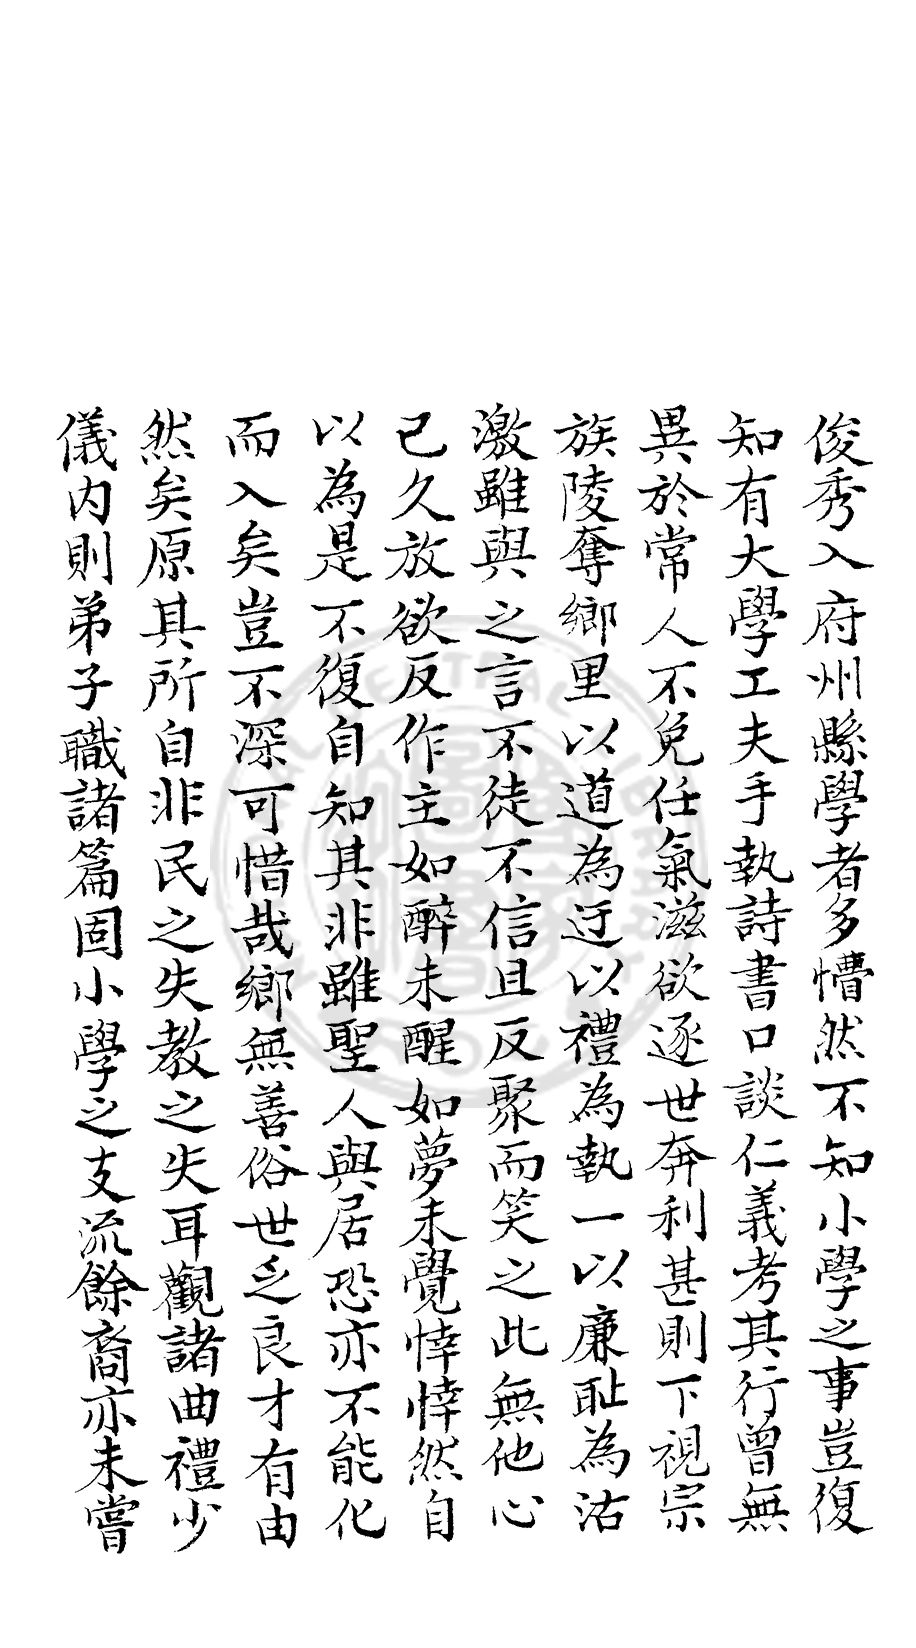 俊秀入府州縣學者多懵然不知小學之事豈復
知有大學工夫手執詩書口談仁義考其行曾無
異於常人不免任氣滋欲逐世奔利甚則下視宗
族陵奪鄉里以道為迂以禮為執一以廉恥為沽
激雖與之言不徒不信且反聚而笑之此無他心
已久放欲反作主如醉未醒如夢未覺悻悻然自
以為是不復自知其非雖聖人與居恐亦不能化
而入矣豈不深可惜哉鄉無善俗世乏良才有由
然矣原其所自非民之失教之失耳觀諸曲禮少
儀內則弟子職諸篇固小學之支流餘裔亦未嘗